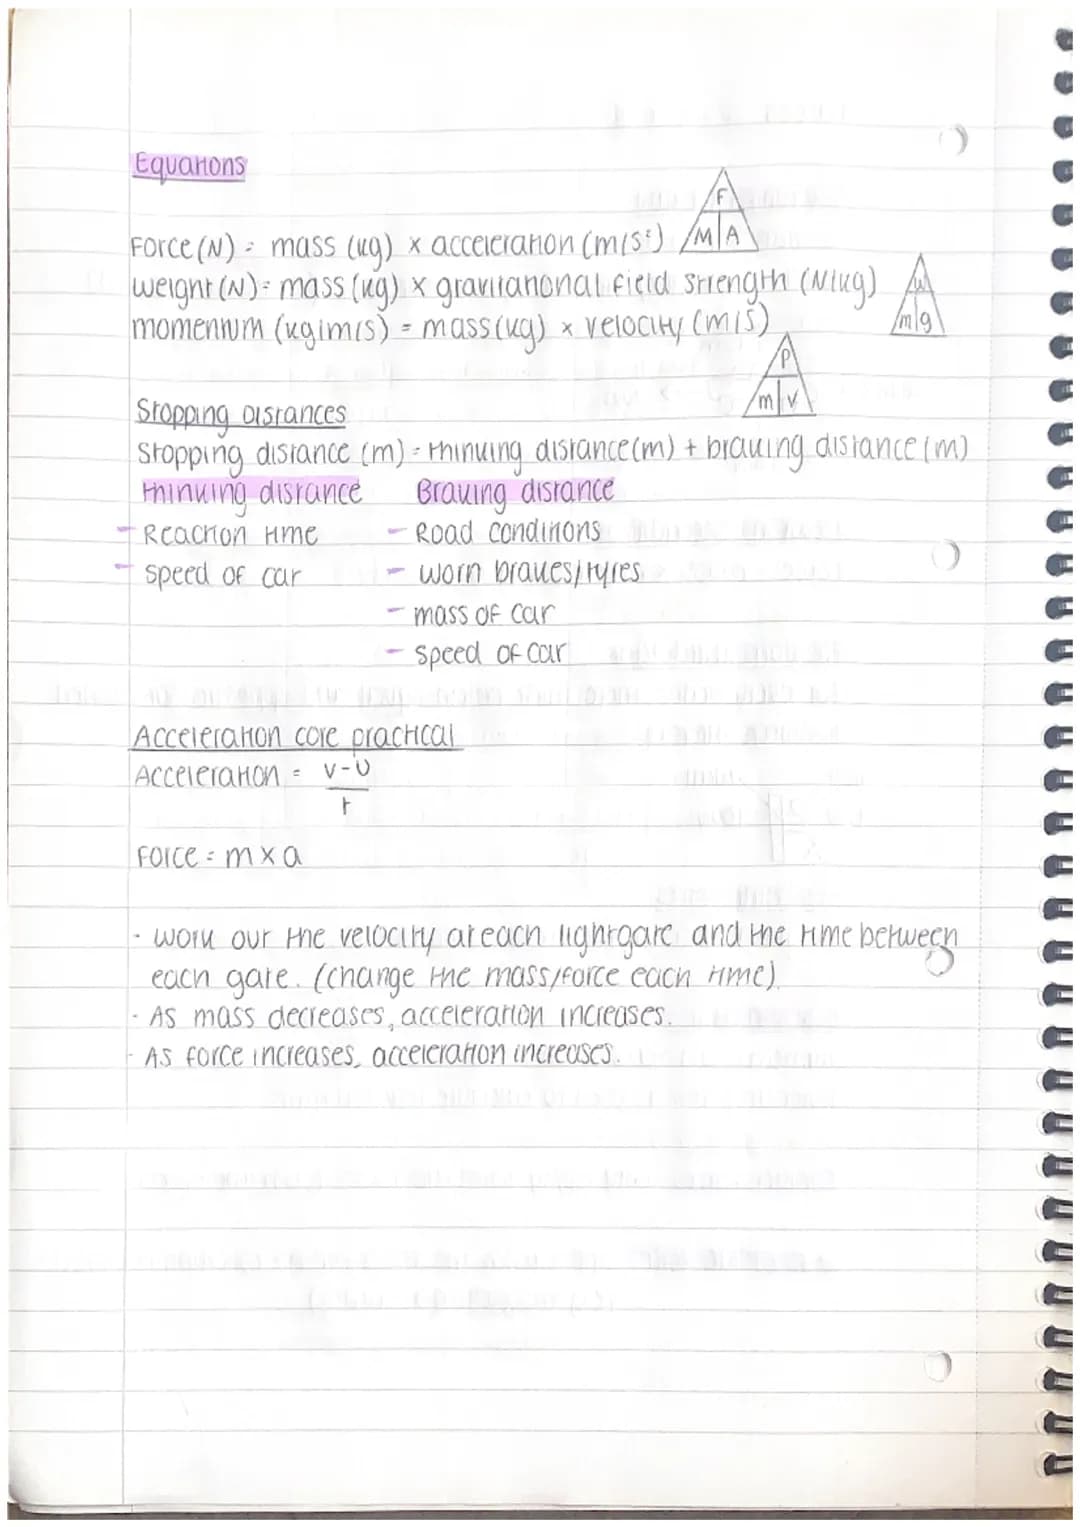 Equations
F
M A
Force (N) = mass (kg) x acceleration (m/s²)
weight (N) = mass (kg) x gravitational field strength (N/kg)
W
m g
momentum (kg/m/s) = mass (kg) x velocity (m/s)
P
m v
Stopping distances
Stopping distance (m) = thinking distance (m) + braking distance (m)
thinking distance Braking distance
- Reaction time - Road conditions
- speed of car - worn brakes/tyres
- mass of car
- speed of car
Acceleration core practical
Acceleration = v-u
t
Force = m x a
· work out the velocity at each lightgate and the time between
each gate. (change the mass/force each time).
· As mass decreases, acceleration increases.
- As force increases, acceleration increases.